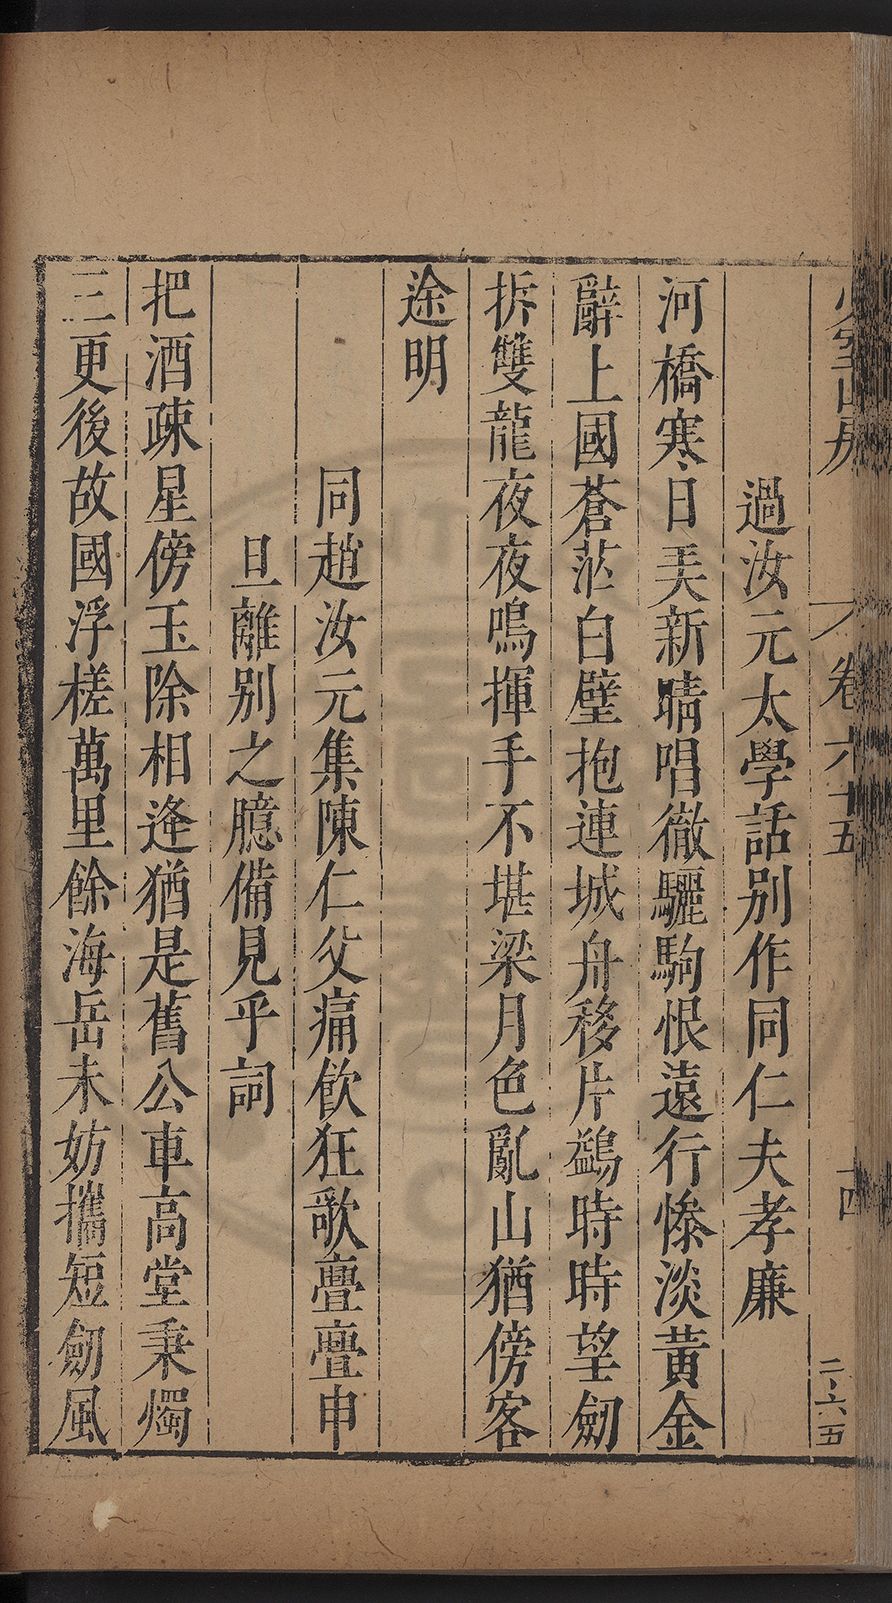 少室山房 卷六十五 十四 二、六五
過汝元太學話別作同仁夫孝廉
河橋寒日羙新晴唱徹驪駒恨遠行慘淡黃金
辭上國蒼茫白璧抱連城舟移片鷁時時望劒
拆雙龍夜夜鳴揮手不堪梁月色亂山猶傍客
途明
同趙汝元集陳仁父痛飲狂歌亹亹申
旦離別之臆備見乎詞
把酒疎星傍玉除相逄猶是舊公車高堂秉燭
三更後故國浮槎萬里餘海岳未妨攜短劒風